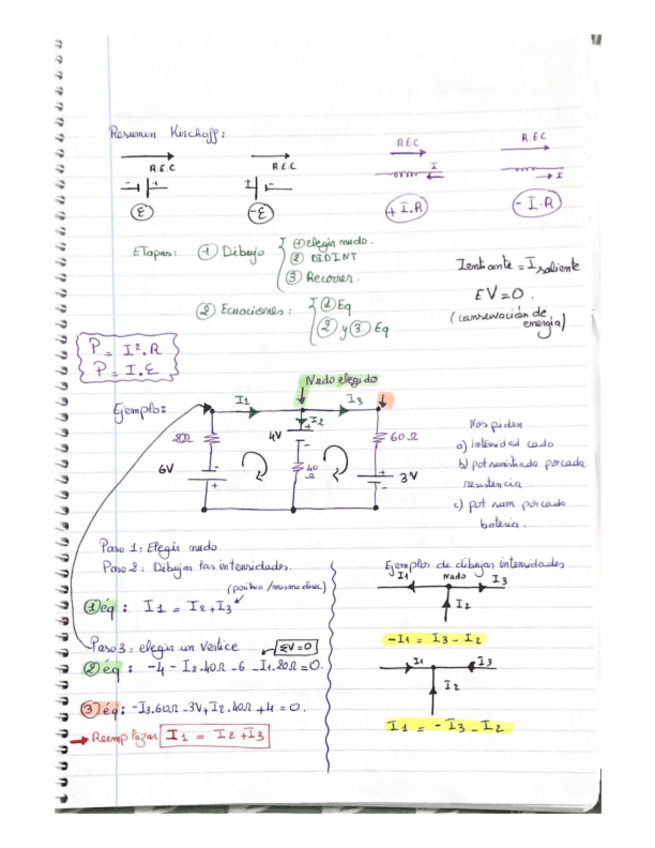 Resumen Kirchoff:
R.E.C R.E.C R.E.C R.E.C
- + + - I I
ε -ε + I.R - I.R
Etapas: ① Dibujo ① elegir nudo.
② DIDINT
③ Recorrer.
Ientrante = Isaliente
EV=0.
(conservación de energía)
② Ecuaciones: ① Eq
② y ③ Eq
P = I².R
P = I.ε
Nudo elegido
Ejemplo: I1 I2 I3
20Ω 4V + - 60Ω
6V - + 40Ω + - 3V
Nos piden
a) intensidad cada
b) pot suministrada por cada
resistencia
c) pot sum por cada
bateria.
Paso 1: Elegir nudo
Paso 2: Dibujar las intensidades.
(positiva/misma direc)
① éq: I1 = I2 + I3
Paso 3: elegir un vertice ΣV=0
② éq: -4 - I2.40Ω - 6 - I1.20Ω = 0.
③ éq: -I3.60Ω - 3V + I2.40Ω + 4 = 0.
→ Reemplazar I1 = I2 + I3
Ejemplos de dibujar intensidades
I1 Nudo I3
I2
-I1 = I3 - I2
I1 I3
I2
I1 = - I3 - I2